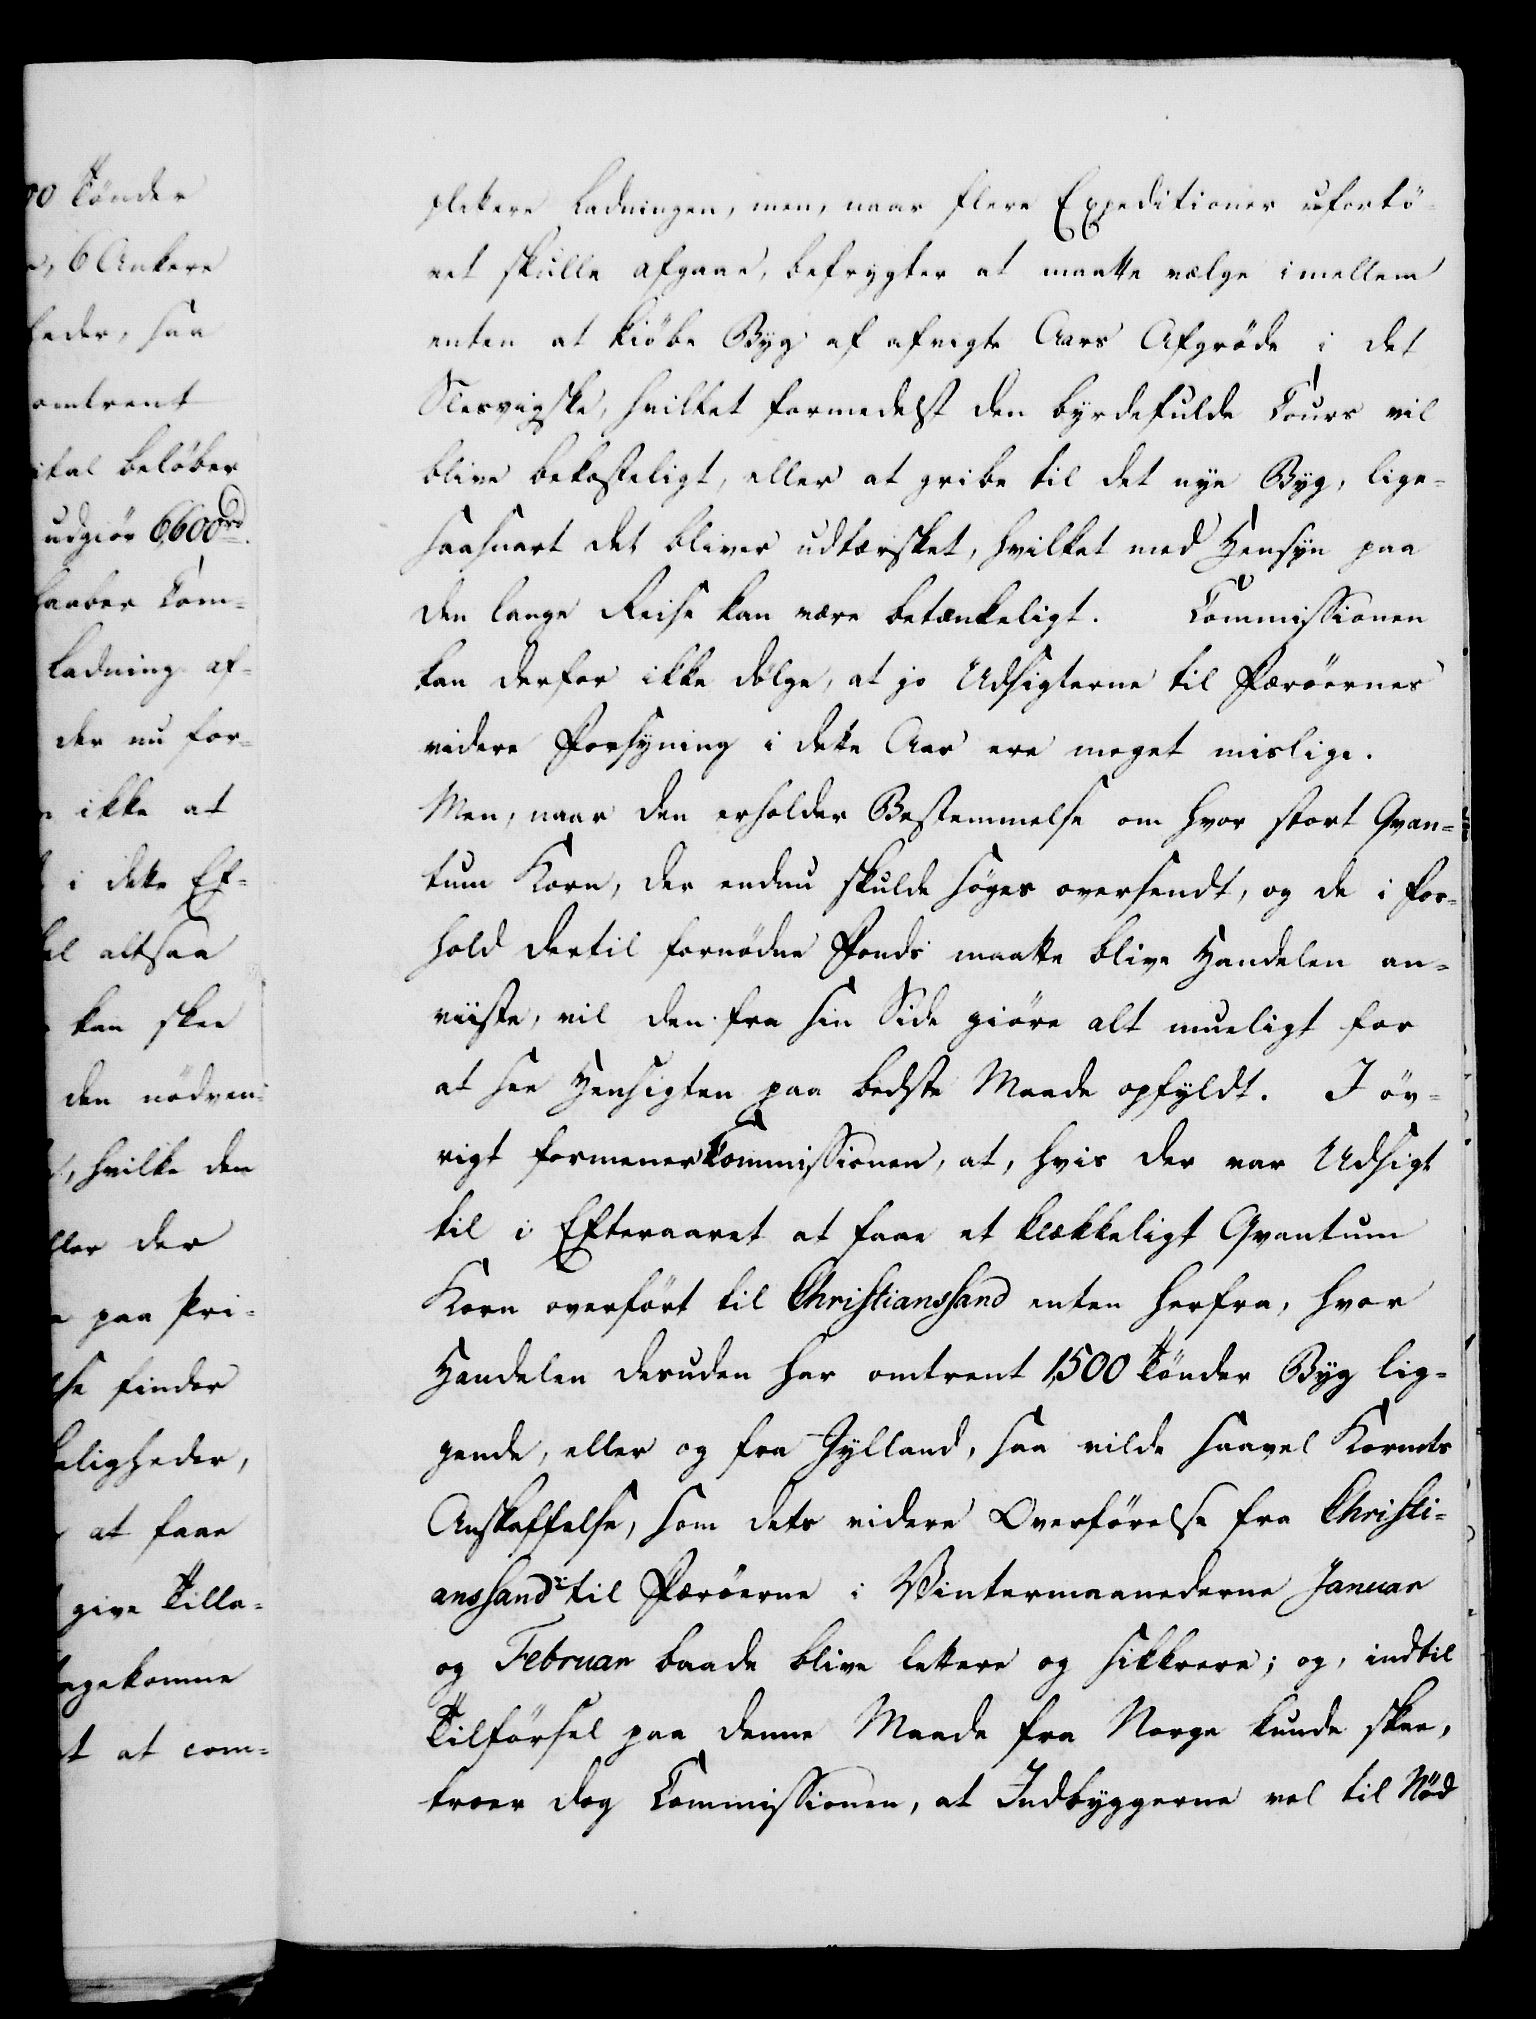 00 Tönder
, 6 Ankere
heder, saa
omtrent
ital beløber
udgiör 6,600 rd.
haaber Com-
Ladning af-
der nu for-
ikke at
i dette Ef-
altsaa
kan skee
den nödven-
, hvilke den
ller der
paa Pri-
finder
eligheder,
at faae
give Tilla-
egekomme
t at com-
plettere Ladningen, men, naar flere Expeditioner ufortö-
vet skulle afgaae, befrygter at maatte vælge imellem
enten at kiöbe Byg af afvigte Aars Afgröde i det
Slesvigske, hvilket formedelst den byrdefulde Cours vil
blive bekosteligt, eller at gribe til det nye Byg, lige-
saasnart det bliver udtærsket, hvilket med Hensyn paa
den lange Reise kan være betænkeligt. Commissionen
kan derfor ikke dölge, at jo Udsigterne til Færöernes
videre Forsyning i dette Aar ere meget mislige.
Men, naar den erholder Bestemmelse om hvor stort Qvan-
tum Korn, der endnu skulde söges oversendt, og de i For-
hold dertil fornödne Fonds maatte blive Handelen an-
viiste, vil den fra sin Side giöre alt mueligt for
at see Hensigten paa bedste Maade opfyldt. I öv-
rigt formener Commissionen, at, hvis der var Udsigt
til i Efteraaret at faae et klækkeligt Qvantum
Korn overfört til Christianssand enten herfra, hvor
Handelen desuden har omtrent 1,500 Tönder Byg lig-
gende, eller og fra Jylland, saa vilde saavel Kornets
Anskaffelse, som dets videre Overförelse fra Christi-
anssand til Færöerne i Vintermaanederne Januar
og Februar baade blive lettere og sikkrere; og, indtil
Tilförsel paa denne Maade fra Norge kunde skee,
troer dog Commissionen, at Indbyggerne vel til Nöd